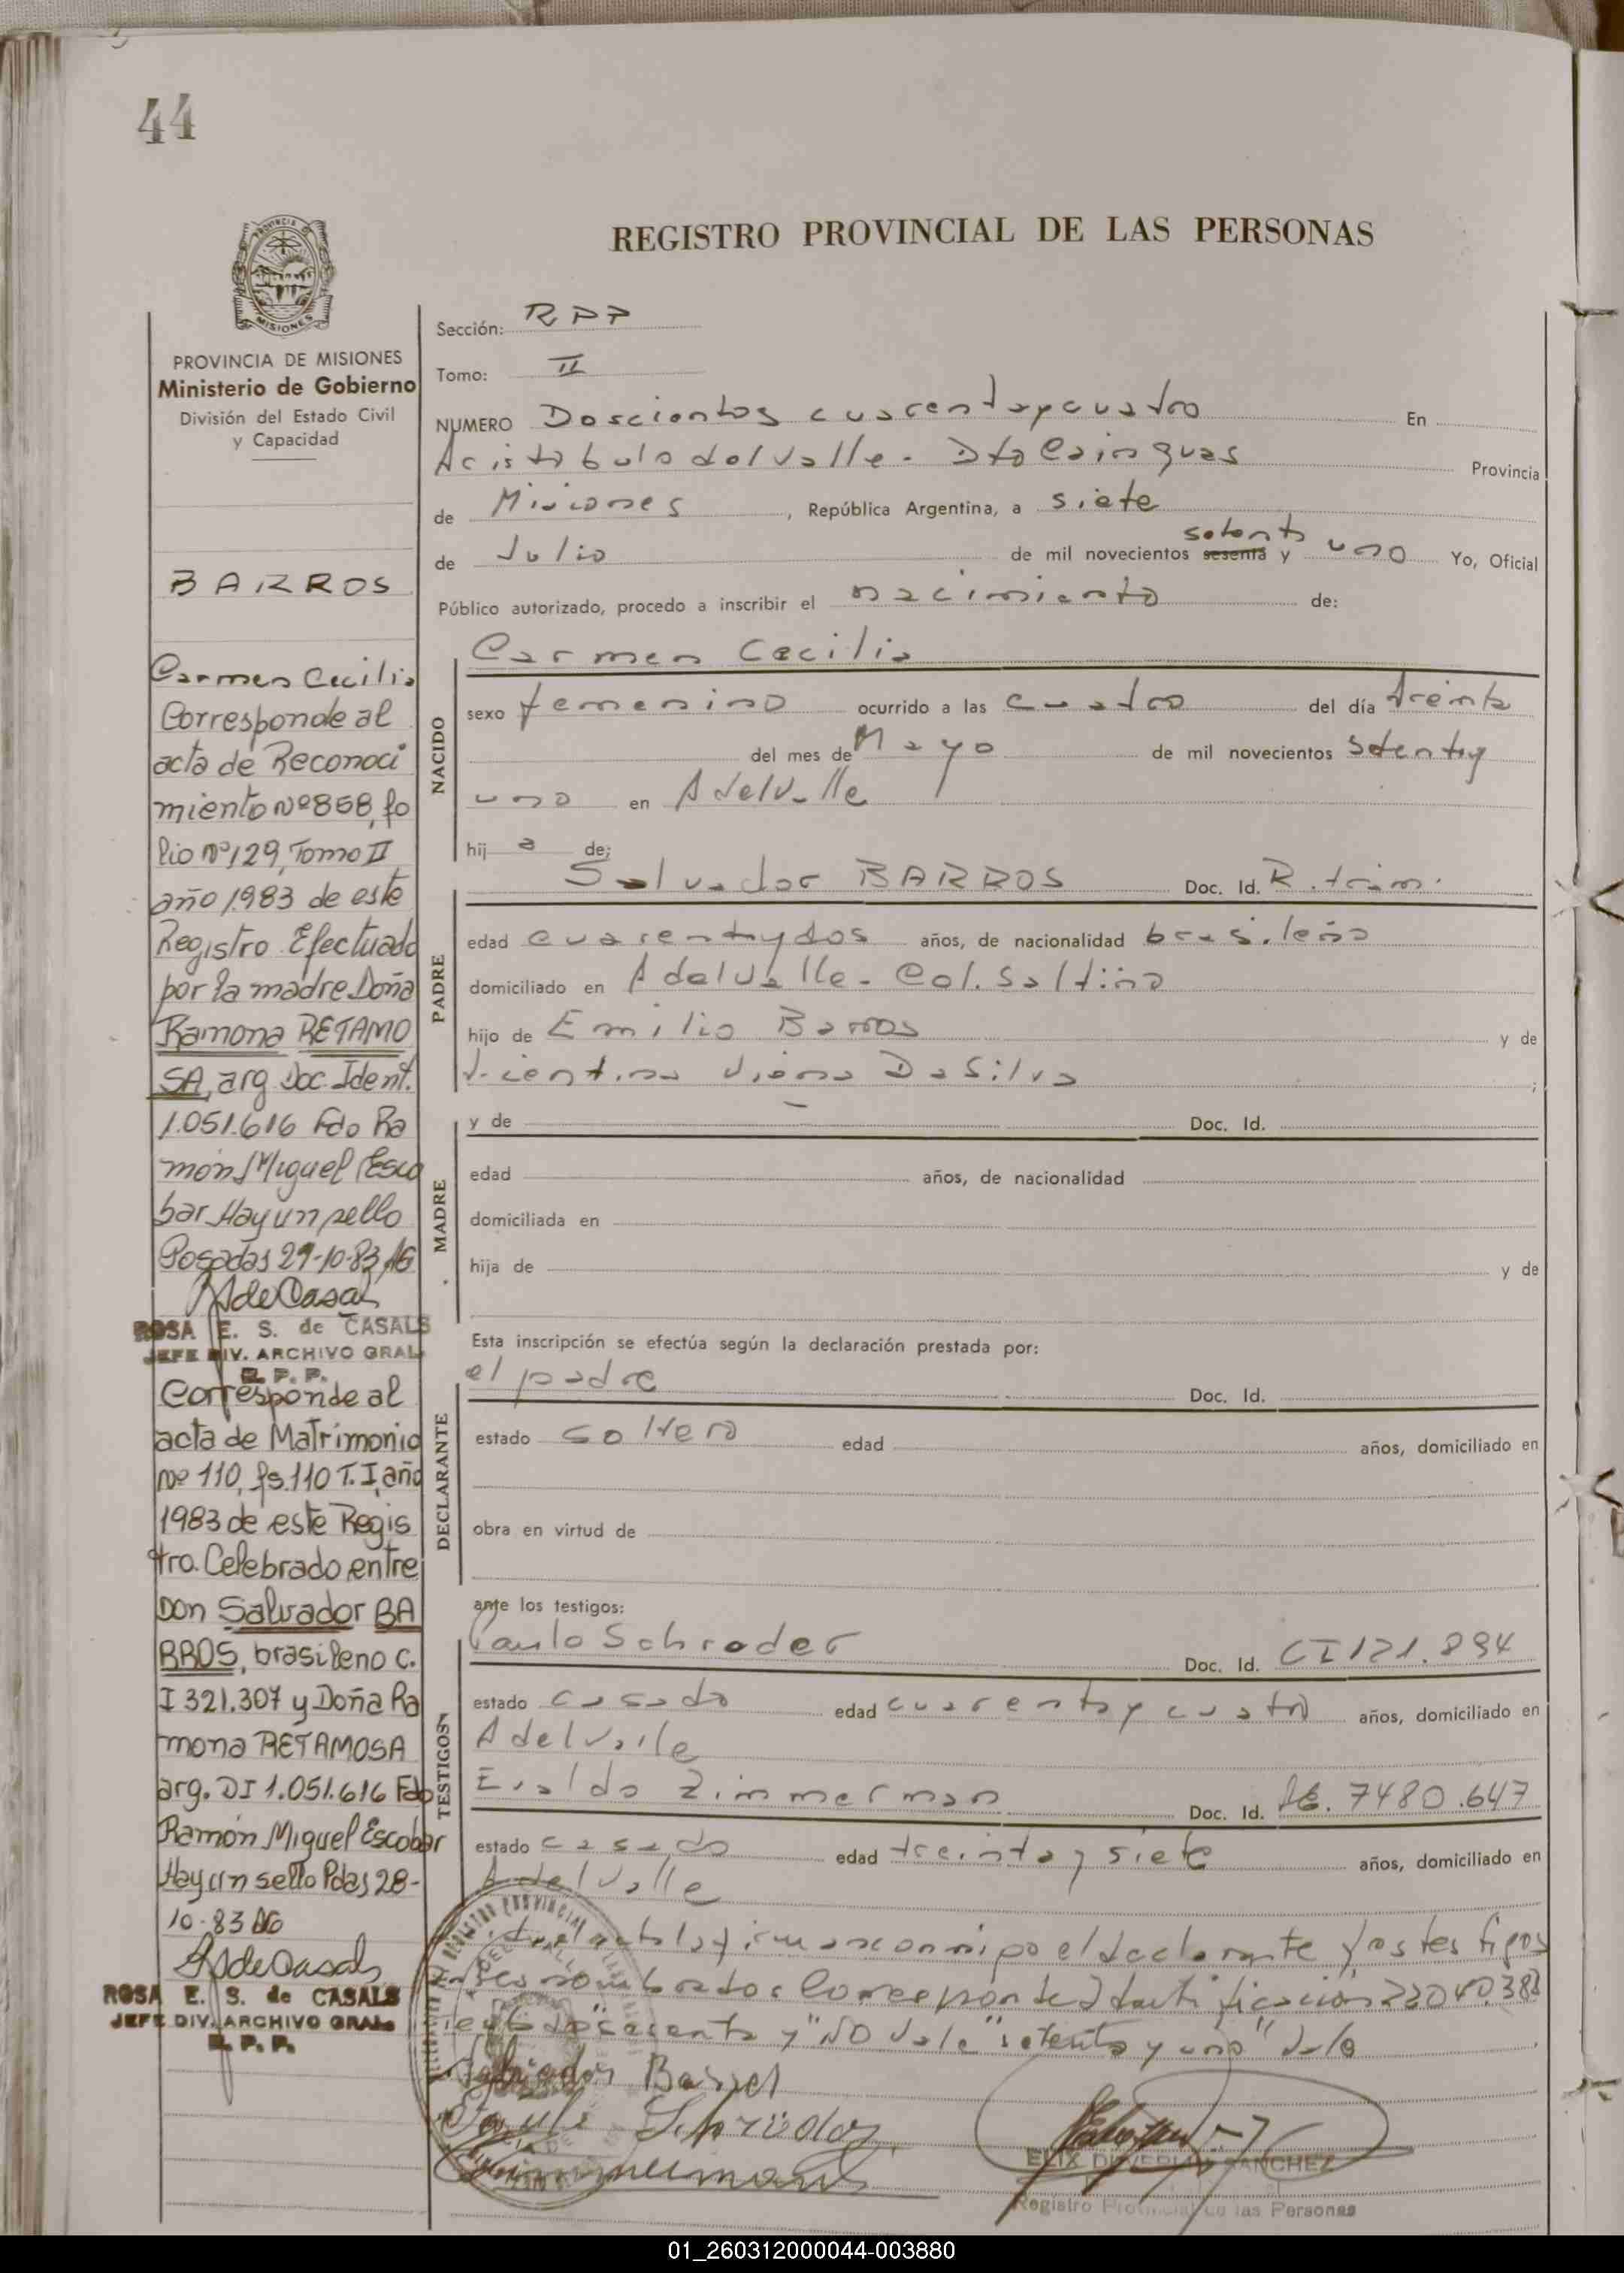 44
REGISTRO PROVINCIAL DE LAS PERSONAS
MISIONES
PROVINCIA DE MISIONES
Ministerio de Gobierno
División del Estado Civil
y Capacidad
BARROS
Carmen Cecilia
Corresponde al
acta de Reconoci
miento Nº 858, fo
lio Nº 129, Tomo II
año 1983 de este
Registro Efectuado
por la madre Doña
Ramona RETAMO
SA, arg Doc. Ident.
1.051.616 Fdo Ra
món Miguel Esco
bar Hay un sello
Posadas 29-10-83
ROSA E. S. de CASALS
JEFE DIV. ARCHIVO GRAL
R. P. P.
Corresponde al
acta de Matrimonio
Nº 110, fs. 110 T. I, año
1983 de este Regis
tro. Celebrado entre
Don Salvador BA
RROS, brasileno C.
I 321.307 y Doña Ra
mona RETAMOSA
arg. DI 1.051.616 Fdo
Ramón Miguel Escobar
Hay un sello Pdas 28-
10-83
ROSA E. S. de CASALS
JEFE DIV. ARCHIVO GRAL
R. P. P.
Sección: RPP
Tomo: II
NUMERO Doscientos cuarenta y cuatro En
Aristobulo del Valle - Dto Cainguas Provincia
de Misiones, República Argentina, a siete
de Julio de mil novecientos sesenta setenta y uno Yo, Oficial
Público autorizado, procedo a inscribir el nacimiento de:
NACIDO
Carmen Cecilia
sexo femenino ocurrido a las cuatro del día treinta
del mes de Mayo de mil novecientos setenta y
uno en A del Valle
hij a de:
PADRE
Salvador BARROS Doc. Id. R. trám.
edad cuarenta y dos años, de nacionalidad brasileño
domiciliado en A del Valle - Col. Saltino
hijo de Emilio Barros y de
Vicentina Viana Da Silva ;
MADRE
y de — Doc. Id.
edad años, de nacionalidad
domiciliada en
hija de y de
Esta inscripción se efectúa según la declaración prestada por:
DECLARANTE
el padre Doc. Id.
estado soltero edad años, domiciliado en
obra en virtud de
ante los testigos:
TESTIGOS
Paulo Schroder Doc. Id. CI 121.894
estado casado edad cuarenta y cuatro años, domiciliado en
A del Valle
Evaldo Zimmerman Doc. Id. 7480.647
estado casado edad treinta y siete años, domiciliado en
A del Valle
el acta la firman conmigo el declarante y los testigos
nombrados Corresponde Identificación 22040.388
"sesenta y" NO vale "setenta y uno" vale
ELIX SANCHEZ
Registro Provincial de las Personas
01_260312000044-003880